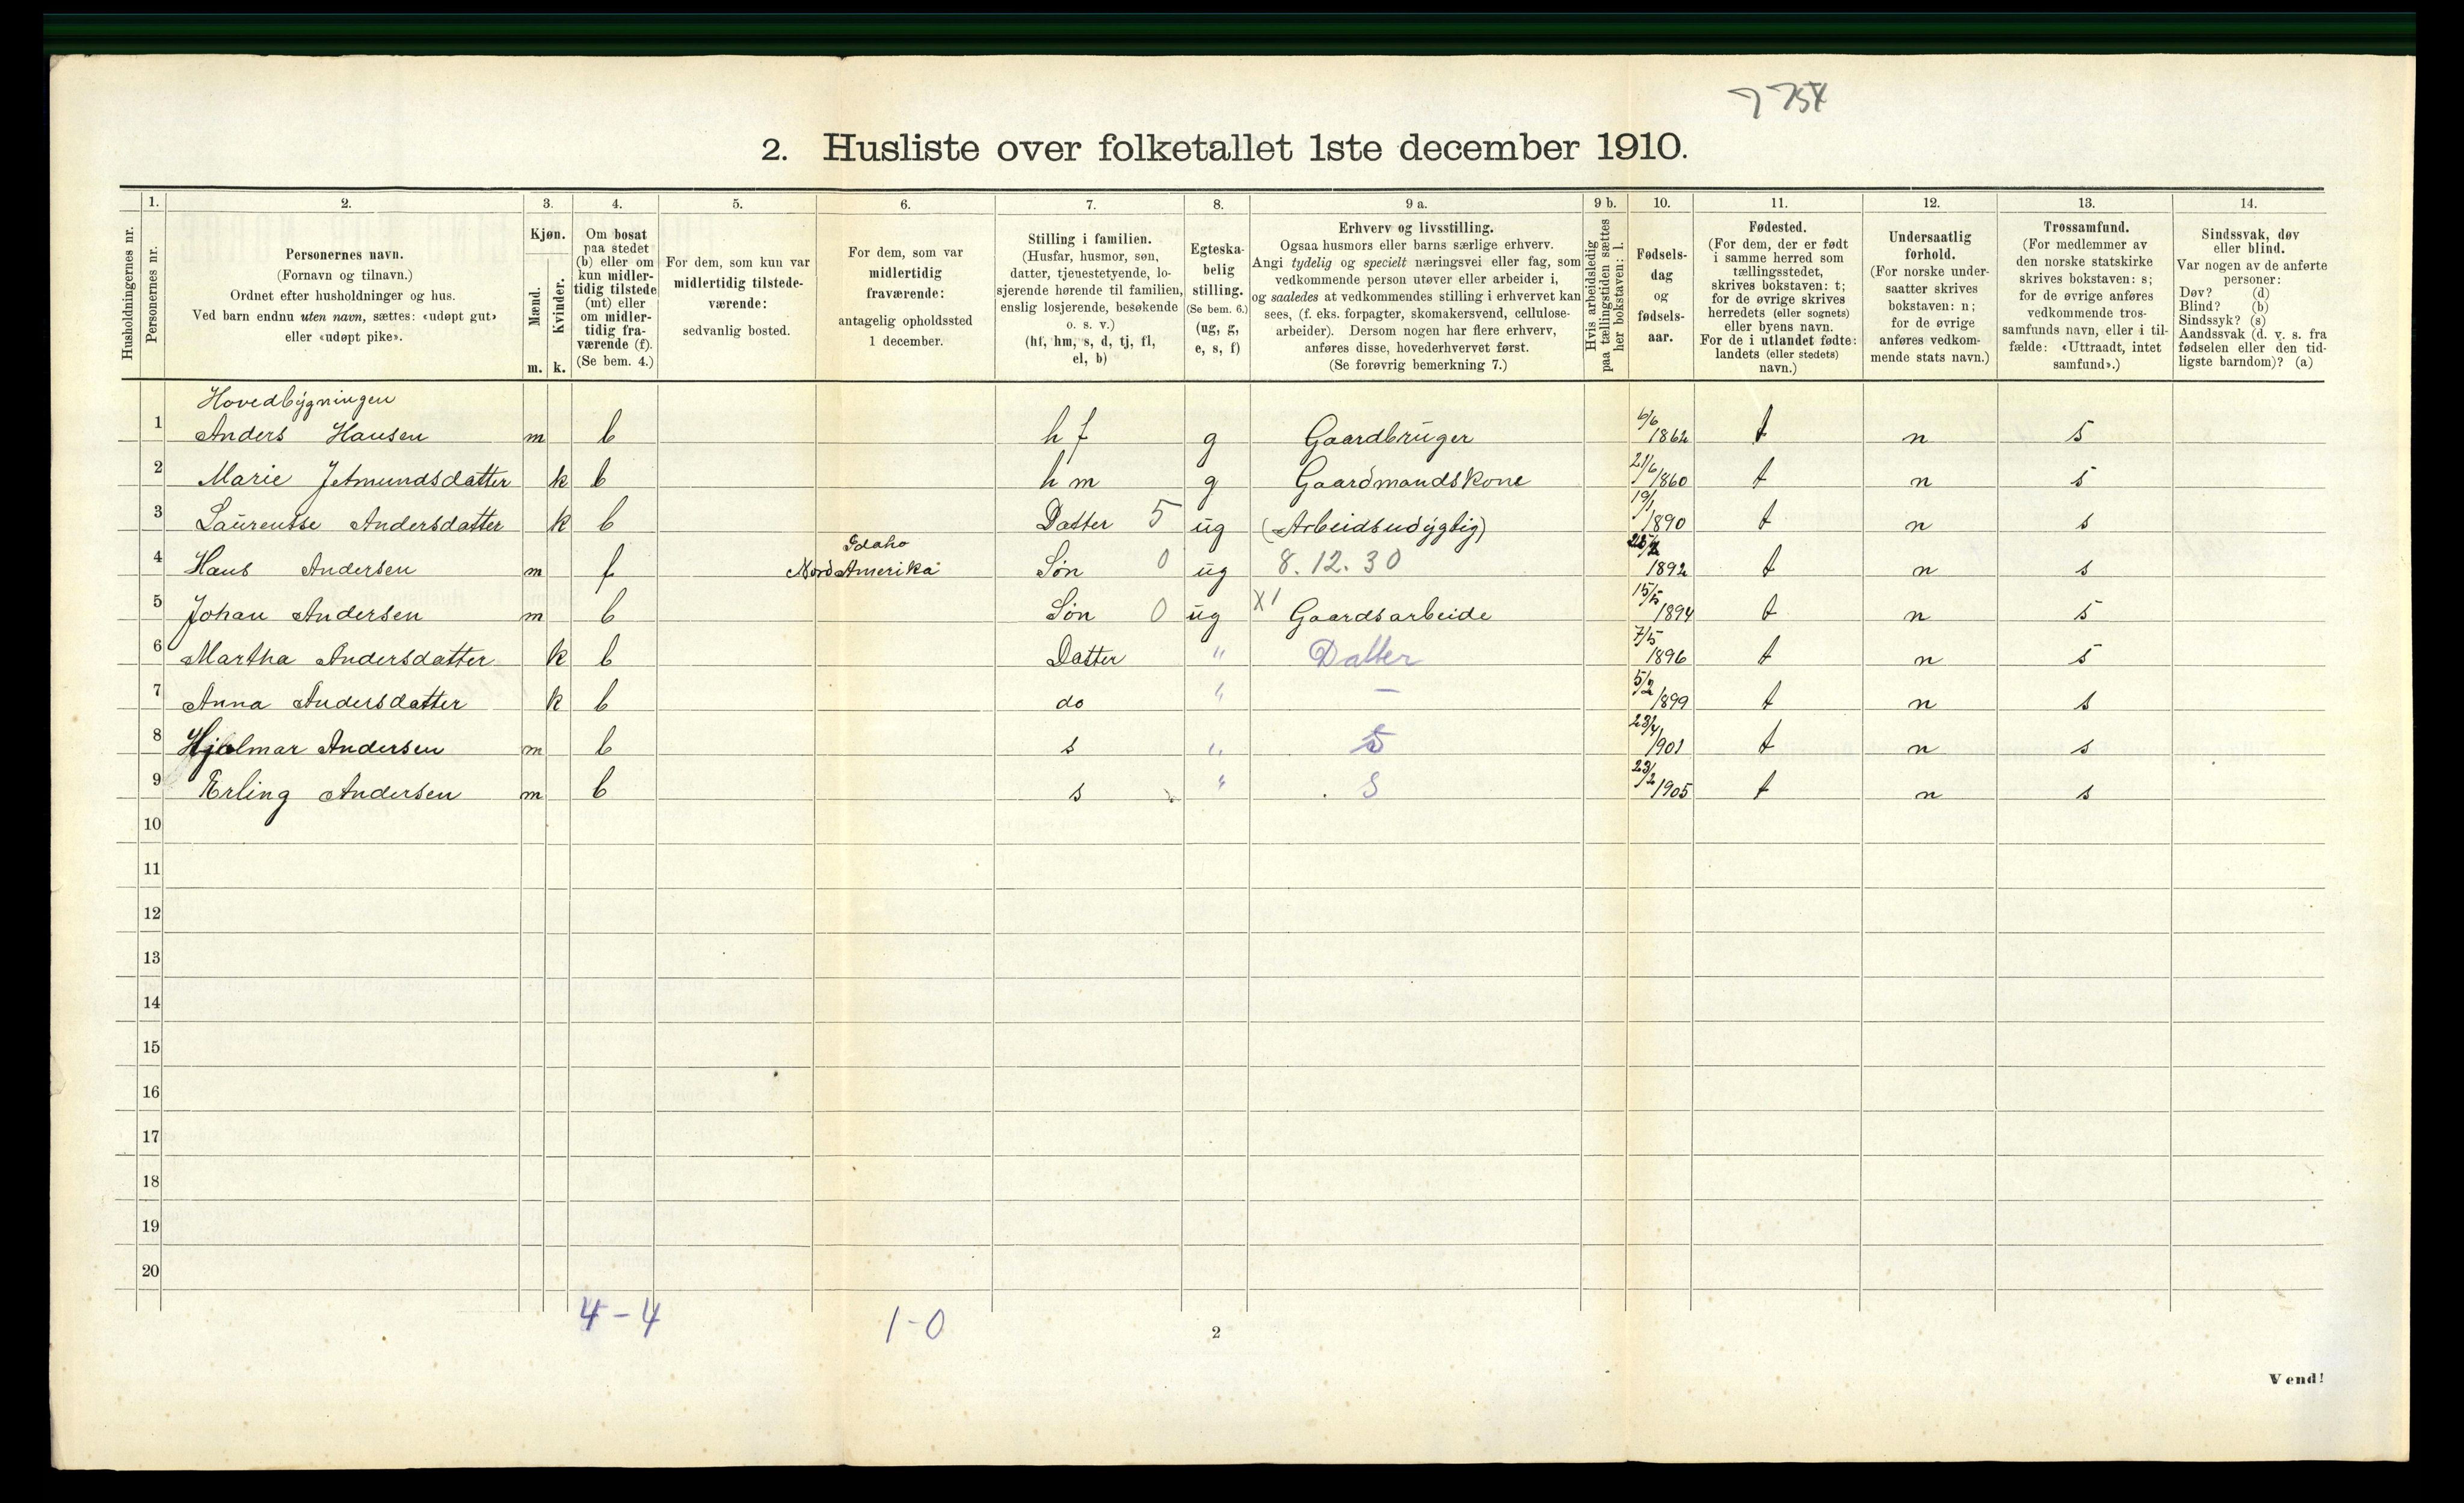 7 754
2. Husliste over folketallet 1ste december 1910.
Husholdningernes nr.
1. Personernes nr.
2. Personernes navn.
(Fornavn og tilnavn.)
Ordnet efter husholdninger og hus.
Ved barn endnu uten navn, sættes: «udøpt gut»
eller «udøpt pike».
3. Kjøn.
Mænd. m.
Kvinder. k.
4. Om bosat
paa stedet
(b) eller om
kun midler-
tidig tilstede
(mt) eller
om midler-
tidig fra-
værende (f).
(Se bem. 4.)
5. For dem, som kun var
midlertidig tilstede-
værende:
sedvanlig bosted.
6. For dem, som var
midlertidig
fraværende:
antagelig opholdssted
1 december.
7. Stilling i familien.
(Husfar, husmor, søn,
datter, tjenestetyende, lo-
sjerende hørende til familien,
enslig losjerende, besøkende
o. s. v.)
(hf, hm, s, d, tj, fl,
el, b)
8. Egteska-
belig
stilling.
(Se bem. 6.)
(ug, g,
e, s, f)
9 a. Erhverv og livsstilling.
Ogsaa husmors eller barns særlige erhverv.
Angi tydelig og specielt næringsvei eller fag, som
vedkommende person utøver eller arbeider i,
og saaledes at vedkommendes stilling i erhvervet kan
sees, (f. eks. forpagter, skomakersvend, cellulose-
arbeider). Dersom nogen har flere erhverv,
anføres disse, hovederhvervet først.
(Se forøvrig bemerkning 7.)
9 b. Hvis arbeidsledig
paa tællingstiden sættes
her bokstaven: l.
10. Fødsels-
dag
og
fødsels-
aar.
11. Fødested.
(For dem, der er født
i samme herred som
tællingsstedet,
skrives bokstaven: t;
for de øvrige skrives
herredets (eller sognets)
eller byens navn.
For de i utlandet fødte:
landets (eller stedets)
navn.)
12. Undersaatlig
forhold.
(For norske under-
saatter skrives
bokstaven: n;
for de øvrige
anføres vedkom-
mende stats navn.)
13. Trossamfund.
(For medlemmer av
den norske statskirke
skrives bokstaven: s;
for de øvrige anføres
vedkommende tros-
samfunds navn, eller i til-
fælde: «Uttraadt, intet
samfund».)
14. Sindssvak, døv
eller blind.
Var nogen av de anførte
personer:
Døv? (d)
Blind? (b)
Sindssyk? (s)
Aandssvak (d. v. s. fra
fødselen eller den tid-
ligste barndom)? (a)
Hovedbygningen
1 Anders Hansen m b h f g Gaardbruger 6/6 1862 t n s
2 Marie Jetmundsdatter k b h m g Gaardmandskone 21/6 1860 t n s
3 Laurentse Andersdatter k b Datter 5 ug (Arbeidsudygtig) 19/1 1890 t n s
4 Hans Andersen m f Idaho Nord Amerika Søn 0 ug 8.12.30 1892 t n s
5 Johan Andersen m b Søn 0 ug X1 Gaardsarbeide 15/5 1894 t n s
6 Martha Andersdatter k b Datter " Datter 7/5 1896 t n s
7 Anna Andersdatter k b do " — 5/2 1899 t n s
8 Hjalmar Andersen m b s " S 23/4 1901 t n s
9 Erling Andersen m b s " S 23/2 1905 t n s
10
11
12
13
14
15
16
17
18
19
20
4-4 1-0
2
Vend!